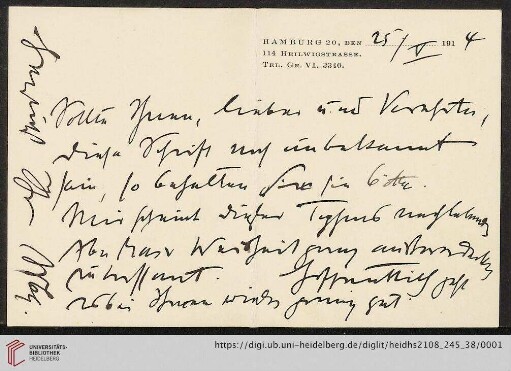 HAMBURG 20, DEN 25/V 1914
114 HEILWIGSTRASSE.
TEL. GR. VI, 3346.
Sollte Ihnen, lieber und Verehrter,
diese Schrift noch unbekannt
sein, so behalten Sie sie bitte.
Mir scheint dieser Typus
Weisheit ganz ausserordentlich
interessant. Hoffentlich geht
es bei Ihnen wieder ganz gut.
Ihr
UNIVERSITÄTS-
BIBLIOTHEK
HEIDELBERG
https://digi.ub.uni-heidelberg.de/diglit/heidhs2108_245_38/0001